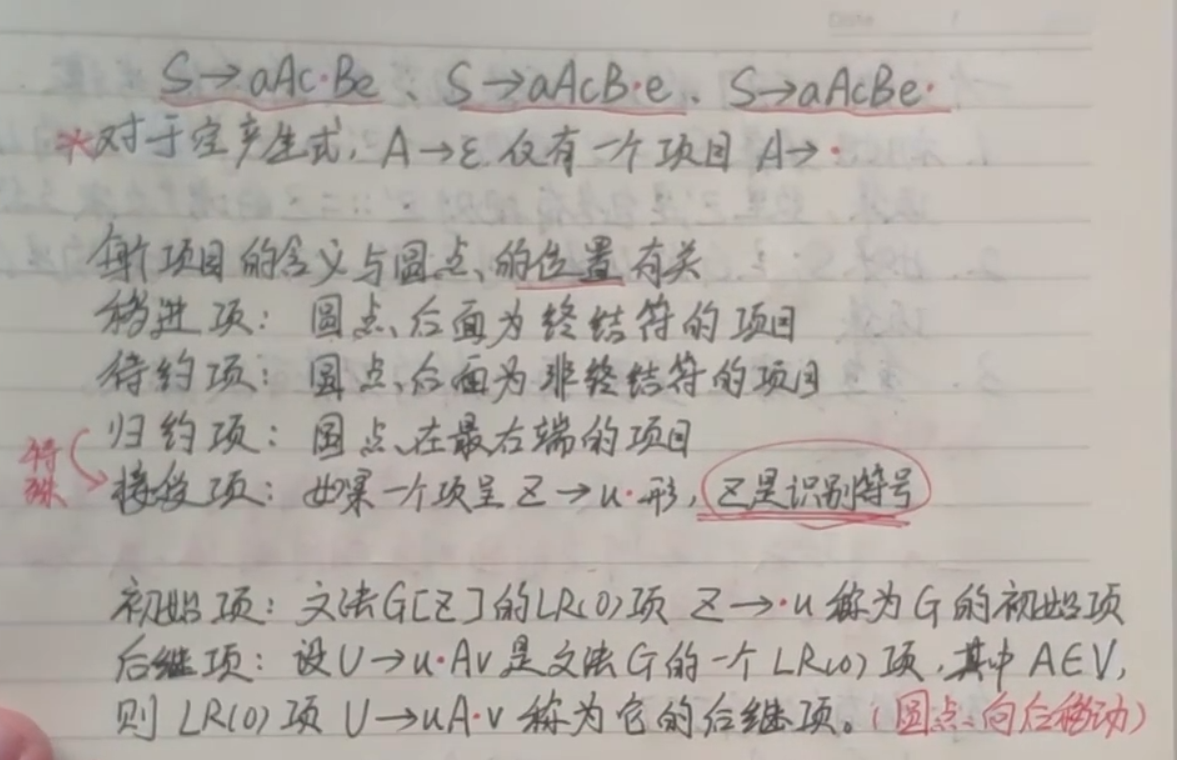 Date
S→aAc·Be、S→aAcB·e、S→aAcBe·
*对于空产生式，A→ε仅有一个项目 A→·
每个项目的含义与圆点的位置有关
移进项：圆点后面为终结符的项目
待约项：圆点后面为非终结符的项目
归约项：圆点在最右端的项目
特殊
接受项：如果一个项呈 Z→u·形，Z是识别符号
初始项：文法G[Z]的LR(0)项 Z→·u 称为G的初始项
后继项：设U→u·Av是文法G的一个LR(0)项，其中A∈V，
则LR(0)项 U→uA·v 称为它的后继项。（圆点向后移动）